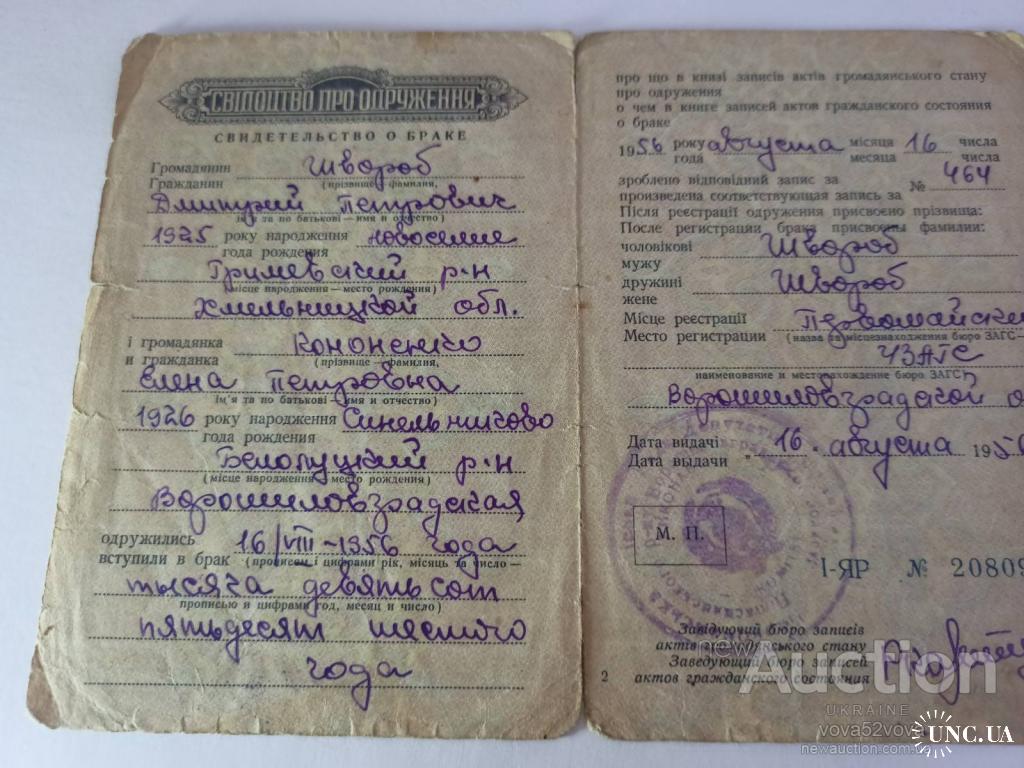 СВІДОЦТВО ПРО ОДРУЖЕННЯ
СВИДЕТЕЛЬСТВО О БРАКЕ
Громадянин Швороб
Гражданин (прізвище — фамилия,
Дмитрий Петрович
ім'я та по батькові — имя и отчество)
1925 року народження новоселие
года рождения
Гримевский р-н
(місце народження — место рождения)
Хмельницкой обл.
і громадянка Кононенко
и гражданка (прізвище — фамилия,
Елена Петровна
ім'я та по батькові — имя и отчество)
1926 року народження Синельниково
года рождения
Белолуцкий р-н
(місце народження — место рождения)
Ворошиловградская
одружились 16/VIII-1956 года
вступили в брак (прописом і цифрами рік, місяць та число —
тысяча девятьсот
прописью и цифрами год, месяц и число)
пятьдесят шестого
года
про що в книзі записів актів громадянського стану
про одруження
о чем в книге записей актов гражданского состояния
о браке
1956 року августа місяця 16 числа
года месяца числа
зроблено відповідний запис за № 464
произведена соответствующая запись за
Після реєстрації одруження присвоєно прізвища:
После регистрации брака присвоены фамилии:
чоловікові Швороб
мужу
дружині Швороб
жене
Місце реєстрації Первомайски
Место регистрации (назва та місцезнаходження бюро ЗАГС—
ЧЗАГС
наименование и местонахождение бюро ЗАГС)
Ворошиловградской о
Дата видачі "16" августа 1956
Дата выдачи
М. П.
І-ЯР № 20809
Завідуючий бюро записів
актів громадянського стану
Заведующий бюро записей
актов гражданского состояния
2
newAuction
UKRAINE
vova52vova
newauction.com.ua
UNC.UA